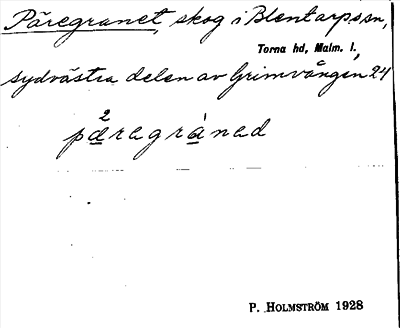 Päregranet, skog i Blentarps sn,
Torna hd, Malm. l.,
sydvästra delen av Grimvången, 24
pæregrànad
P. HOLMSTRÖM 1928